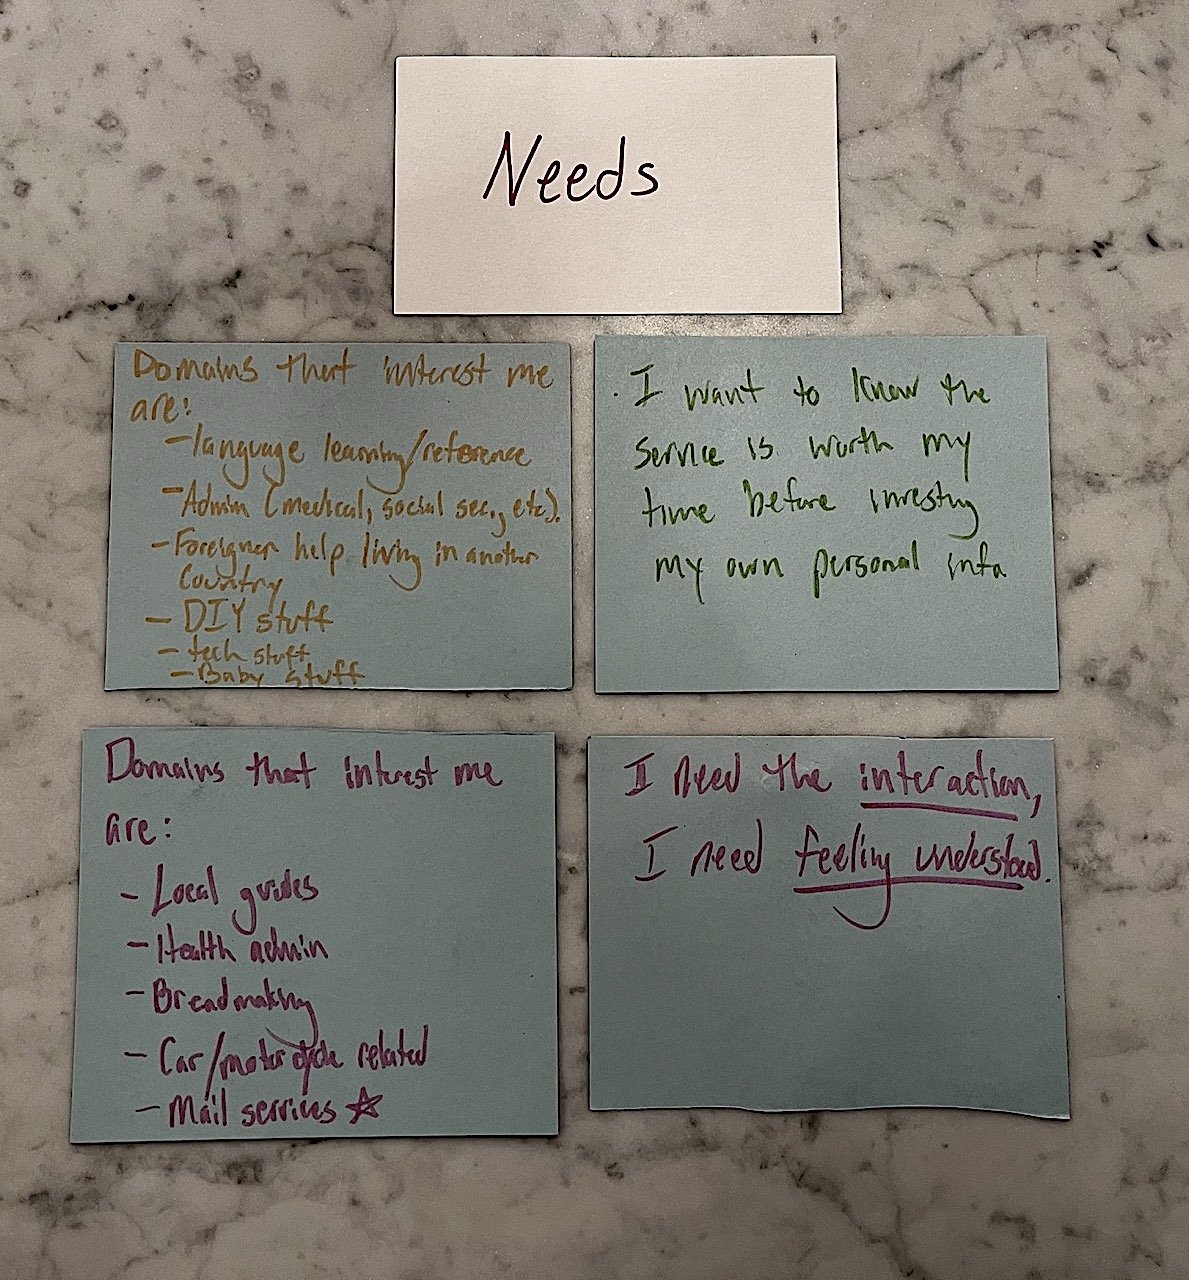 Needs
Domains that interest me
are:
- language learning/reference
- Admin (medical, social sec., etc).
- Foreigner help living in another
Country
- DIY stuff
- tech stuff
- Baby stuff
I want to know the
service is worth my
time before investing
my own personal info
Domains that interest me
are:
- Local guides
- Health admin
- Breadmaking
- Car/motorcycle related
- Mail services ☆
I need the interaction,
I need feeling understood.